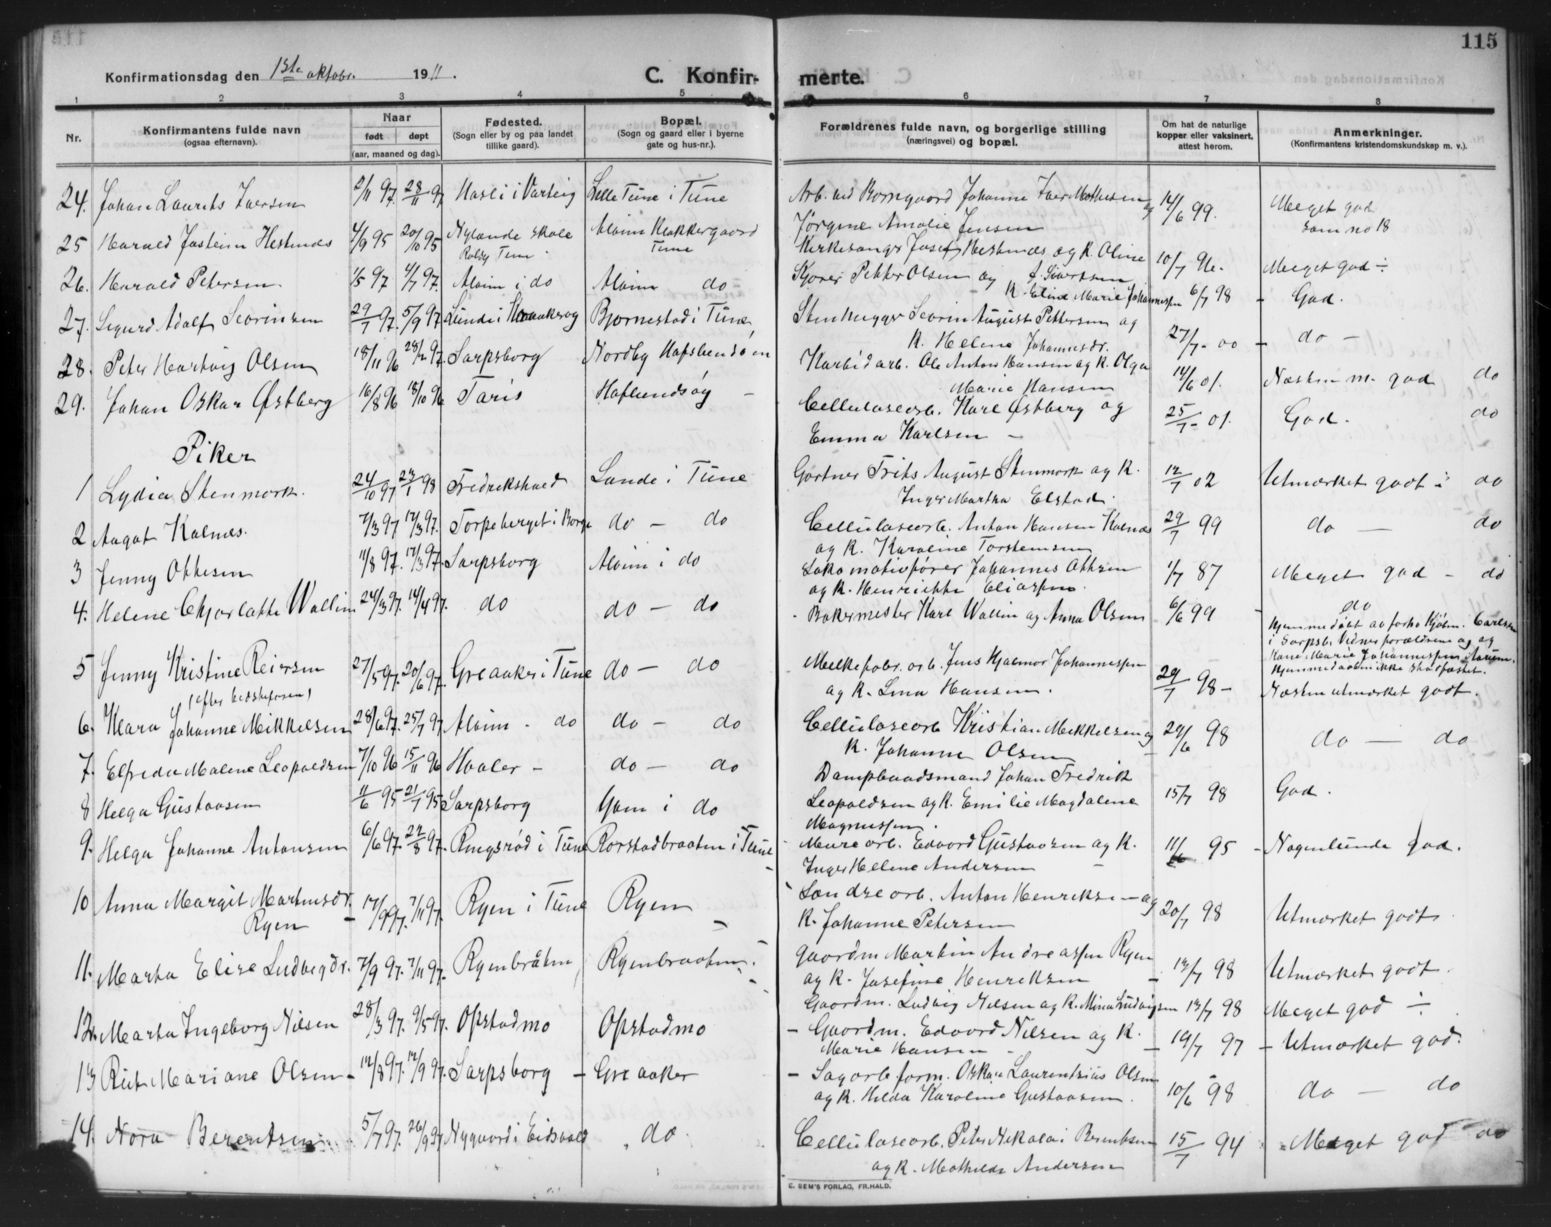 115
Konfirmationsdag den 1ste oktobr. 1911.
C. Konfirmerte.
1 2 3 4 5 6 7 8
Nr.
Konfirmantens fulde navn
(ogsaa efternavn).
Naar
født døpt
(aar, maaned og dag).
Fødested.
(Sogn eller by og paa landet
tillike gaard).
Bopæl.
(Sogn og gaard eller i byerne
gate og hus-nr.).
Forældrenes fulde navn, og borgerlige stilling
(næringsvei) og bopæl.
Om hat de naturlige
kopper eller vaksinert,
attest herom.
Anmerkninger.
(Konfirmantens kristendomskundskap m. v.).
24. Johan Laurits Iversen 2/11 97. 28/11 97 Hasle i Varteig Lille Tune i Tune Arb. ved Borregaard Johannes Iver Mathisen og 14/6 99. Meget god
Jørgine Amalie Jensen som no 18
25 Harald Jostein Hestnæs 4/9 95 20/10 95 Nylande skole Alvim Klokkergaard Kirkesanger Josef Hestnæs og k. Oline 10/7 96. Meget god ÷
Tune Tune
26. Harald Petersen. 1/5 97 4/7 97. Alvim i do Alvim do Kjører Petter Olsen og
k. Eline Marie Johannessen 6/7 98 - God.
27. Sigurd Adolf Severinsen 29/7 97. 5/9 97. Lunde i Bjørnestad i Tune Stenhugger Severin August Pettersen og
k. Helene Johannesdr. 27/7 00 - do -
28. Peter Hartvig Olsen 18/11 96 28/2 97. Sarpsborg Nordby Hafslundsøen Karbidarb. Ole Anton Hansen og k. Olga
Marie Hansen 14/6 01. Næsten m. god do
29. Johan Oskar Østberg 16/8 96 18/10 96 Taris Hafslundsøy - Celluloseorb. Karl Østberg og 25/7 01. God. do
Emma Karlsen -
Piker
1 Lydia Stenmork. 24/10 97 27/1 98 Fredrikshald Lande i Tune Gartner Frits August Stenmork og k. 12/7 02 Utmærket godt ÷ do
Inger Martha Elstad.
2 Aagot Kalnæs. 7/3 97 17/3 97. Torpeberget i Borge do - do Celluloseorb. Anton Hansen Kalnæs 29/7 99 do - do
og k. Karoline Torstensen
3 Jenny Othesen 11/8 97. 17/3 97. Sarpsborg Alvim i do Lokomotivfører Johannes Othsen 1/7 87 Meget god - do
og k. Henriette Eliassen.
4. Helene Charlotte Wallin 24/3 97. 14/4 97. do do - do - Bakermester Karl Wallin og Anna Olsen 6/6 99 - do
Hjemmedøbt av Carlsen
i Sarpsb. forældrene og
Marie Johannessen
Hjemmedaaben ikke stadfæstet.
5 Jenny Kristine Reiersen 27/5 97. 20/6 97. Greaaker i Tune do - do - Melkefabr. arb. Jens Hjalmar Johannessen 29/7 98 - Næsten utmærket godt.
(efter bedsteforen) og k. Lina Hansen.
6. Klara Johanne Mikkelsen 28/6 97. 25/7 97 Alvim. do do - do Celluloseorb Kristian Mikkelsen og 24/6 98 do - do
k. Johanne Olsen
7. Elfreda Malene Leopoldsen 7/10 96 15/11 96 Hvaler - do - do Dampbaadsmand Johan Fredrik
Leopoldsen og k. Emilie Magdalene 15/7 98 God.
Magnussen.
8 Helga Gustavsen 11/6 95 21/7 95 Sarpsborg i do
9. Helga Johanne Antonsen 6/6 97. 22/8 97. Ringsrød i Tune Rorstadbraaten i Tune Murearb. Edvard Gustavsen og k. 11/6 95 - Nogenlunde god.
Inger Helene Andersen -
10 Anna Margit Martinsdr. 17/9 97. 7/11 97. Ryen i Tune Ryen - Søndre orb. Anton Henriksen og 20/7 98 Utmærket godt.
Ryen - k. Johanne Petersen
11. Marta Elise Ludvigdr. 7/9 97. 7/11 97. Ryenbråten Ryenbraaten Gaardm Martin Andreassen Ryen 13/7 98 Utmærket godt.
og k. Josefine Henriksen -
12. Marta Ingeborg Nilsen 28/3 97. 9/5 97. Opstadmo Opstadmo Gaardm. Ludvig Nilsen og k. Mina Ludvigsen 13/7 98 Meget god ÷
- Gaardm. Edvard Nilsen og k. 19/7 97 - Utmærket god.
Marie Hansen -
13 Rut Mariane Olsen - 12/8 97. 12/9 97. Sarpsborg - Greaaker - Sagarb.form. Oskar Laurentzius Olsen 10/6 98 do - do
og k. Hilda Karoline Gustavsen
14. Nora Berentsen. 5/7 97. 26/9 97. Nygaard i Eidsvold do. Celluloseorb. Peter Nikolai Berentsen 15/7 94 Meget god do
og k. Mathilde Andersen
E. SEM'S FORLAG, FR.HALD.